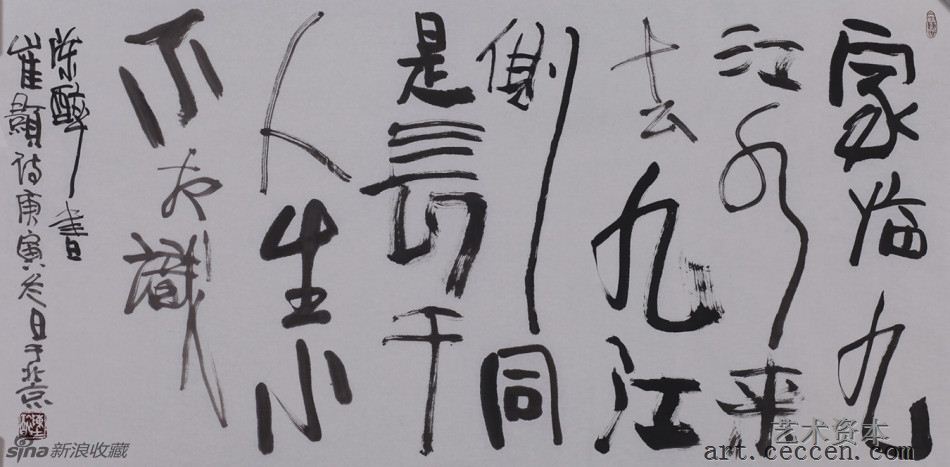 家临九
江水来
去九江
側同
是長干
人生小
不相識
陈醉書
崔顥诗庚寅冬日于北京
sina新浪收藏
艺术资本
art.ceccen.com